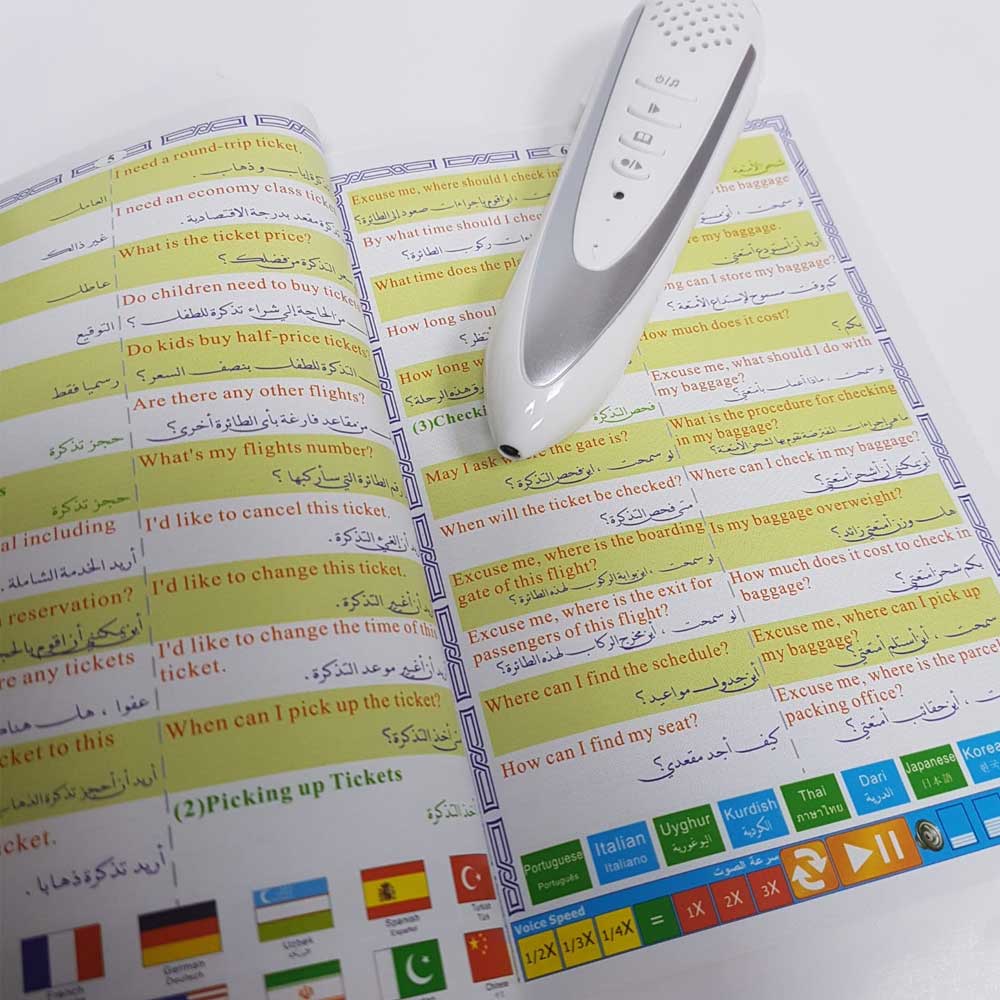 5
I need a round-trip ticket.
I need an economy class ticket
تذكرة مقعد بدرجة الاقتصادية .
What is the ticket price?
سعر التذكرة من فضلك؟
Do children need to buy ticket
من الحاجة إلى شراء تذكرة للطفل ؟
Do kids buy half-price tickets
التذكرة للطفل بنصف السعر؟
Are there any other flights?
من مقاعد فارغة بأي الطائرة أخرى؟
What's my flights number?
رقم الطائرة التي سأركبها ؟
I'd like to cancel this ticket.
I'd like to change this ticket.
I'd like to change the time of this
ticket.
أن أغير موعد التذكرة .
When can I pick up the ticket?
(2)Picking up Tickets
أخذ التذكرة
العامل
غير ذالك
عاطل
التوقيع
رسميا فقط
حجز تذكرة
حجز تذكرة
al including
أريد الخدمة الشاملة .
reservation?
re any tickets
عفوا ، هل هناك
cket to this
cket.
أريد تذكرة ذهابا .
French
German
Deutsch
Uzbek
Spanish
Español
6
Excuse me, where should I check in
By what time should I chec
What time does the pla
How long shoul
How long w
(3)Checki
فحص التذكرة
May I ask where the gate is?
لو سمحت ، أين فحص التذكرة ؟
When will the ticket be checked?
متى فحص التذكرة؟
Excuse me, where is the boarding
gate of this flight?
لو سمحت ، أين بوابة الركوب لهذه الطائرة ؟
Excuse me, where is the exit for
passengers of this flight?
لو سمحت ، أين مخرج الركاب لهذه الطائرة؟
Where can I find the schedule?
أين جدول مواعيد؟
How can I find my seat?
كيف أجد مقعدي؟
شحن الأمتعة
the baggage
re my baggage.
أريد أن أستودع أمتعتي
ong can I store my baggage?
كم وقت مسموح لإستداع الأمتعة ؟
How much does it cost?
بكم ؟
Excuse me, what should I do with
my baggage?
لو سمحت ، ماذا أعمل بأمتعتي؟
What is the procedure for checking
in my baggage?
Where can I check in my baggage?
أين يمكنني أن أشحن أمتعتي؟
Is my baggage overweight?
هل وزن أمتعتي زائد؟
How much does it cost to check in
baggage?
بكم شحن أمتعتي؟
Excuse me, where can I pick up
my baggage?
سمحت ، أين أستلم أمتعتي؟
Excuse me, where is the parcel
packing office?
Portuguese
Português
Italian
Italiano
Uyghur
Kurdish
الكردية
Thai
ภาษาไทย
Dari
الدرية
Japanese
日本語
Korea
한국
Voice Speed
سرعة الصوت
1/2X 1/3X 1/4X = 1X 2X 3X